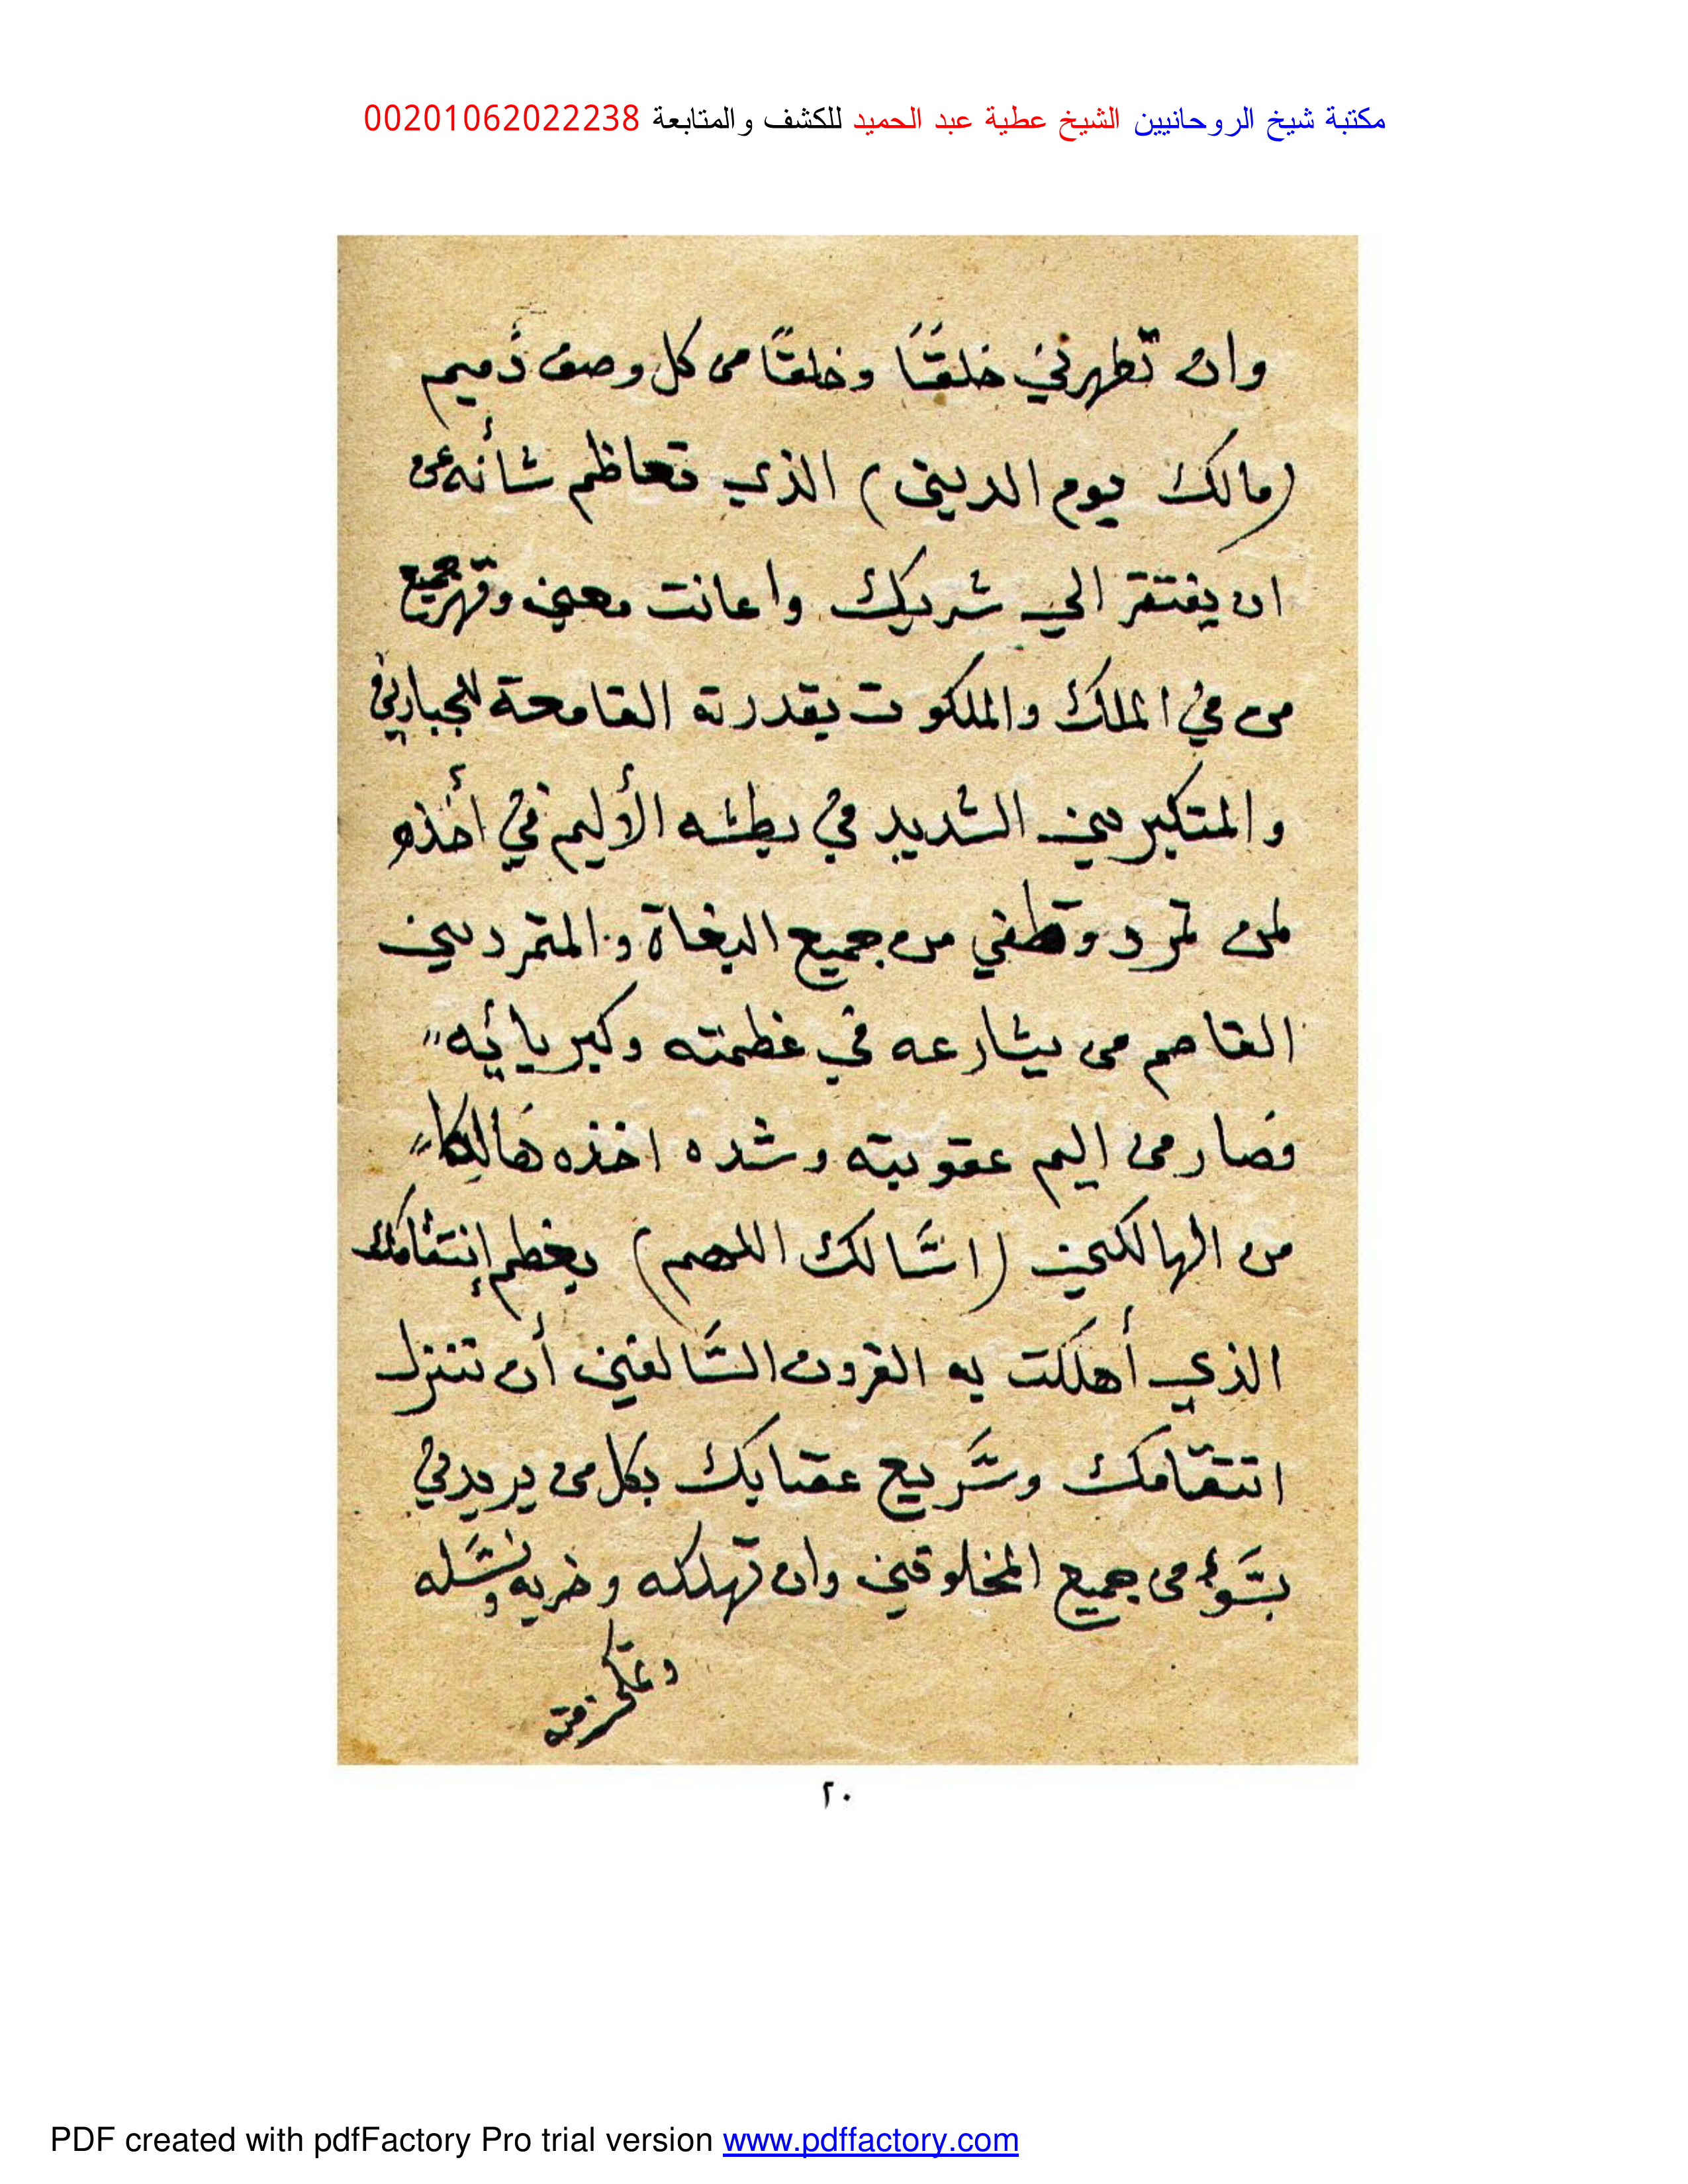 مكتبة شيخ الروحانيين الشيخ عطية عبد الحميد للكشف والمتابعة 00201062022238
وان تطهرني خلقًا وخلقًا من كل وصف ذميم
(مالك يوم الدين) الذي تعاظم شأنه عن
ان يفتقر الي شريك واعانت معين وقهر جميع
من في الملك والملكوت بقدرته القامعة للجبارين
والمتكبرين الشديد في بطشه الأليم في أخذه
لمن تمرد وطغي من جميع البغاة والمتمردين
القاصم من يشارعه في عظمته وكبريائه
فصار من اليم عقوبته وشده اخذه هالكا
من الهالكين (اسَّالك اللهم) بعظم إنتقامك
الذي أهلكت به القرون السَّالفين أن تنزل
انتقامك وسَّريع عقابك بكل من يريدني
بسَّوء من جميع المخلوقين وان تهلكه وخربه ونسَّله
٢٠
PDF created with pdfFactory Pro trial version www.pdffactory.com